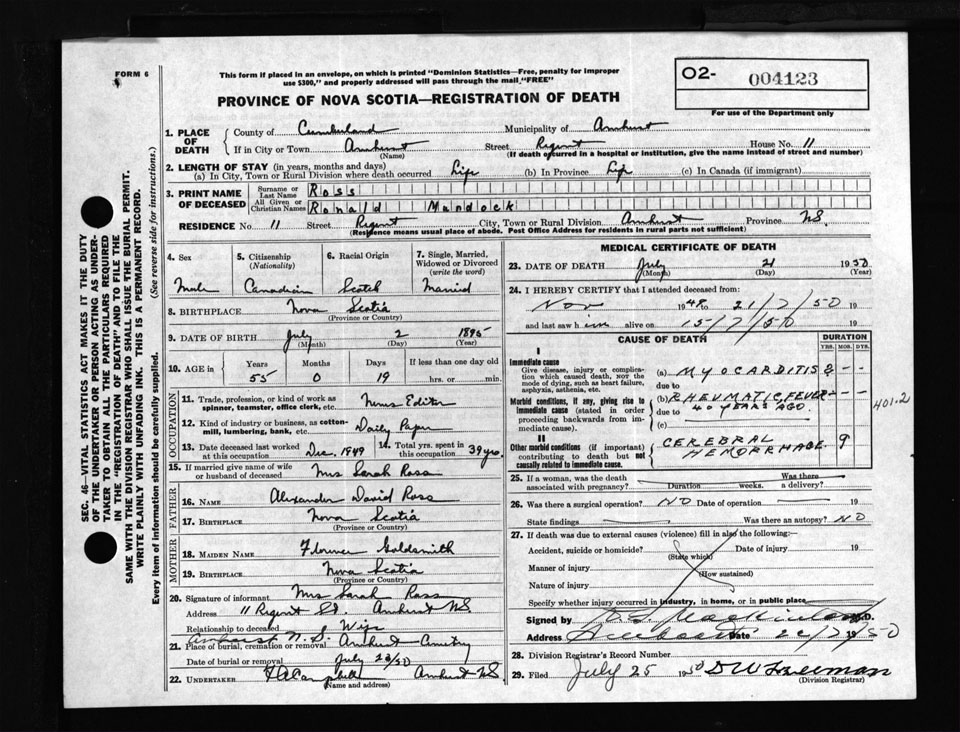 FORM 6
This form if placed in an envelope, on which is printed "Dominion Statistics—Free, penalty for improper
use $300," and properly addressed will pass through the mail "FREE"
O2- 004123
For use of the Department only
PROVINCE OF NOVA SCOTIA—REGISTRATION OF DEATH
SEC. 46—VITAL STATISTICS ACT MAKES IT THE DUTY
OF THE UNDERTAKER OR PERSON ACTING AS UNDER-
TAKER TO OBTAIN ALL THE PARTICULARS REQUIRED
IN THE "REGISTRATION OF DEATH" AND TO FILE THE
SAME WITH THE DIVISION REGISTRAR WHO SHALL ISSUE THE BURIAL PERMIT.
WRITE PLAINLY WITH UNFADING INK. THIS IS A PERMANENT RECORD.
Every item of information should be carefully supplied. (See reverse side for instructions.)
1. PLACE OF DEATH
County of Cumberland Municipality of Amherst
If in City or Town Amherst Street Regent House No. 11
(Name) (If death occurred in a hospital or institution, give the name instead of street and number)
2. LENGTH OF STAY (in years, months and days)
(a) In City, Town or Rural Division where death occurred Life (b) In Province Life (c) In Canada (if immigrant)
3. PRINT NAME OF DECEASED
Surname or Last Name Ross
All Given or Christian Names Ronald Murdock
RESIDENCE No. 11 Street Regent City, Town or Rural Division Amherst Province NS.
(Residence means usual place of abode. Post Office Address for residents in rural parts not sufficient)
4. Sex 5. Citizenship (Nationality) 6. Racial Origin 7. Single, Married, Widowed or Divorced (write the word)
Male Canadian Scotch Married
8. BIRTHPLACE Nova Scotia
(Province or Country)
9. DATE OF BIRTH July 2 1895
(Month) (Day) (Year)
10. AGE in Years Months Days If less than one day old
55 0 19 hrs. or min.
OCCUPATION
11. Trade, profession, or kind of work as spinner, teamster, office clerk, etc. News Editor
12. Kind of industry or business, as cotton-mill, lumbering, bank, etc. Daily Paper
13. Date deceased last worked at this occupation Dec. 1949 14. Total yrs. spent in this occupation 39 yrs.
15. If married give name of wife or husband of deceased Mrs Sarah Ross
FATHER
16. NAME Alexander David Ross
17. BIRTHPLACE Nova Scotia
(Province or Country)
MOTHER
18. MAIDEN NAME Florence Goldsmith
19. BIRTHPLACE Nova Scotia
(Province or Country)
20. Signature of informant Mrs Sarah Ross
Address 11 Regent St. Amherst NS
Relationship to deceased Wife
Amherst N.S.
21. Place of burial, cremation or removal Amherst Cemetry
Date of burial or removal July 23/50
22. UNDERTAKER Campbell Amherst NS
(Name and address)
MEDICAL CERTIFICATE OF DEATH
23. DATE OF DEATH July 21 1950
(Month) (Day) (Year)
24. I HEREBY CERTIFY that I attended deceased from:
Nov 1948 to 21/7/50 19
and last saw him alive on 15/7/50 19
CAUSE OF DEATH DURATION
YRS. MOS. DYS.
I
Immediate cause
Give disease, injury or complication which caused death, NOT the mode of dying, such as heart failure, asphyxia, asthenia, etc.
(a) MYOCARDITIS
due to
Morbid conditions, if any, giving rise to immediate cause (stated in order proceeding backwards from immediate cause).
(b) RHEUMATIC FEVER
due to 40 YEARS AGO.
(c)
401.2
II
Other morbid conditions (if important) contributing to death but not causally related to immediate cause.
CEREBRAL HEMORRHAGE. 9
25. If a woman, was the death associated with pregnancy? Duration weeks Was there a delivery?
26. Was there a surgical operation? NO Date of operation 19
State findings Was there an autopsy? NO
27. If death was due to external causes (violence) fill in also the following:—
Accident, suicide or homicide? Date of injury 19
(State which)
Manner of injury
(How sustained)
Nature of injury
Specify whether injury occurred in industry, in home, or in public place
Signed by M.D.
Address Amherst Date 22/7/1950
28. Division Registrar's Record Number
29. Filed July 25 1950
(Division Registrar)